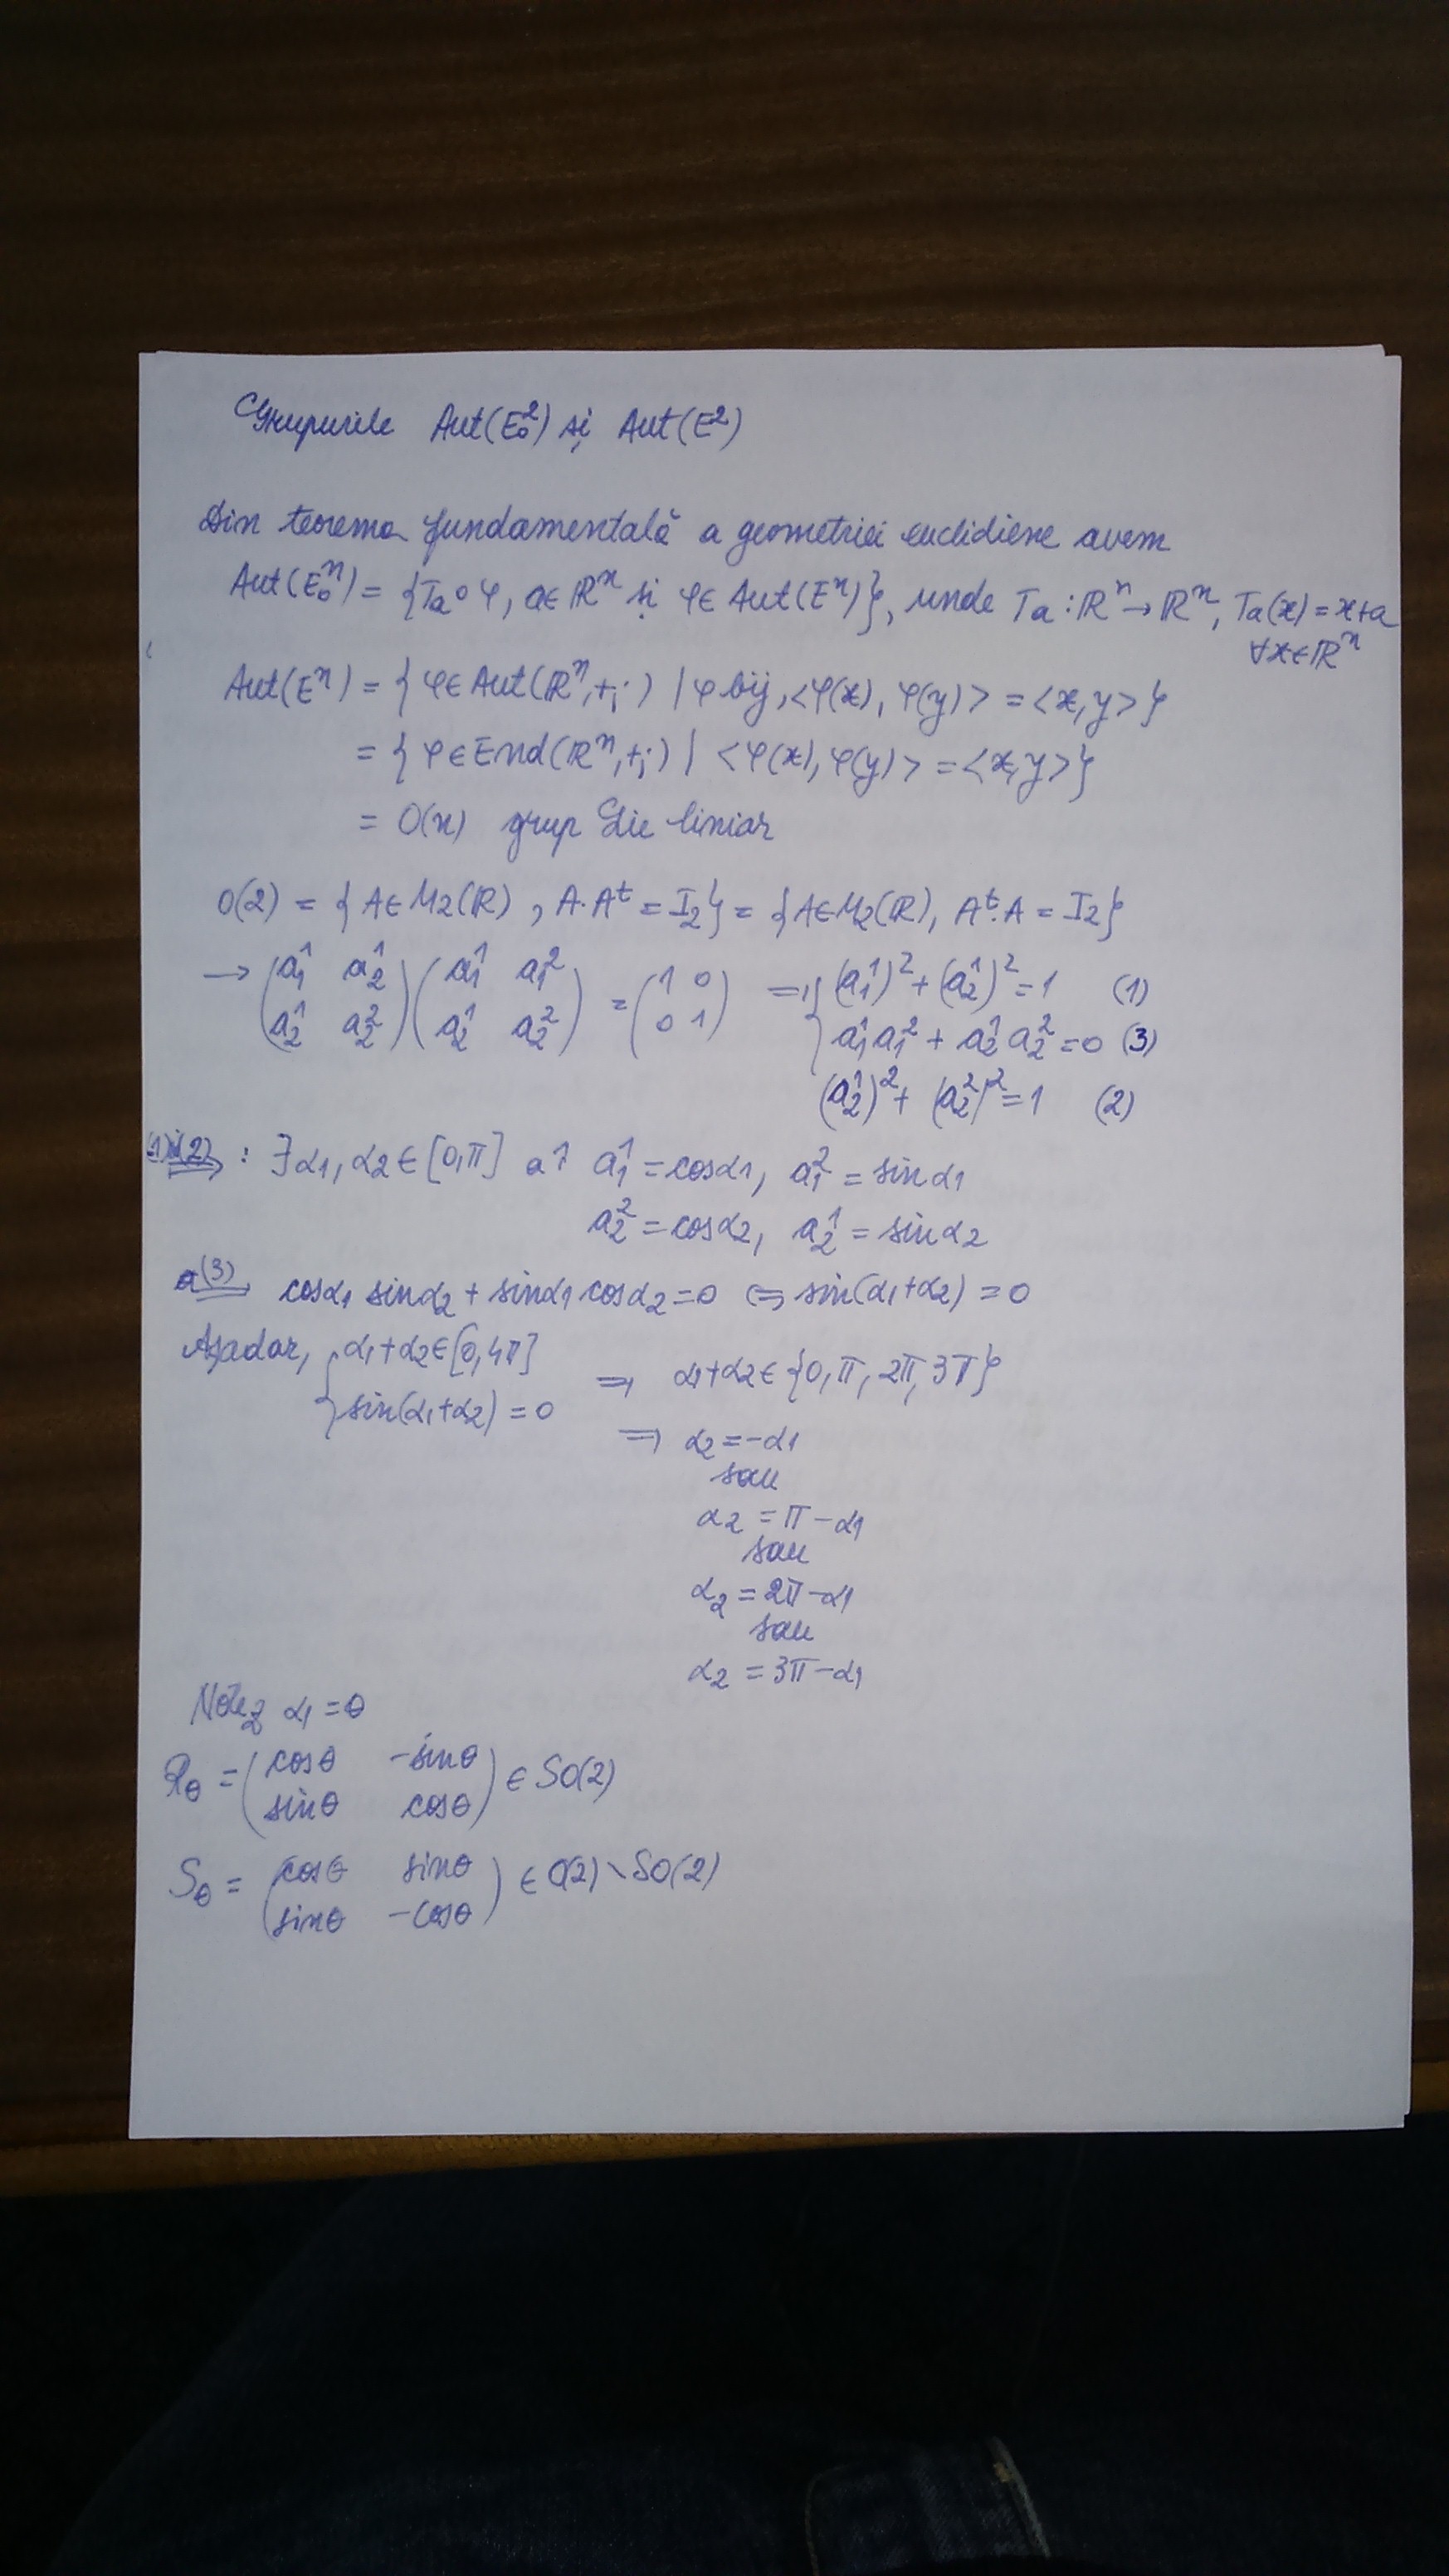 Grupurile Aut(E₀²) și Aut(E²)
Din teorema fundamentală a geometriei euclidiene avem
Aut(E₀ⁿ) = {Ta∘φ, a∈ℝⁿ și φ∈Aut(Eⁿ)}, unde Ta:ℝⁿ→ℝⁿ, Ta(x)=x+a
∀x∈ℝⁿ
Aut(Eⁿ) = {φ∈Aut(ℝⁿ,+,·) | φ bij, <φ(x), φ(y)> = <x,y>}
= {φ∈End(ℝⁿ,+,·) | <φ(x),φ(y)> = <x,y>}
= O(n) grup Lie liniar
O(2) = {A∈M₂(ℝ), A·Aᵗ = I₂} = {A∈M₂(ℝ), Aᵗ·A = I₂}
→ (a₁¹ a₂¹) (a₁¹ a₁²) = (1 0) ⇒ { (a₁¹)² + (a₂¹)² = 1 (1)
(a₂¹ a₂²) (a₂¹ a₂²) (0 1) a₁¹a₁² + a₂¹a₂² = 0 (3)
(a₂¹)² + (a₂²)² = 1 (2)
(1)și(2) ⇒ : ∃α₁, α₂∈[0,π] aî a₁¹ = cosα₁, a₁² = sinα₁
a₂² = cosα₂, a₂¹ = sinα₂
(3) cosα₁ sinα₂ + sinα₁ cosα₂ = 0 ⇔ sin(α₁+α₂) = 0
Așadar, { α₁+α₂∈[0,4π] ⇒ α₁+α₂∈{0,π,2π,3π}
sin(α₁+α₂) = 0
⇒ α₂ = -α₁
sau
α₂ = π-α₁
sau
α₂ = 2π-α₁
sau
α₂ = 3π-α₁
Notez α₁ = θ
Rθ = (cosθ -sinθ) ∈ SO(2)
(sinθ cosθ)
Sθ = (cosθ sinθ) ∈ O(2)∖SO(2)
(sinθ -cosθ)